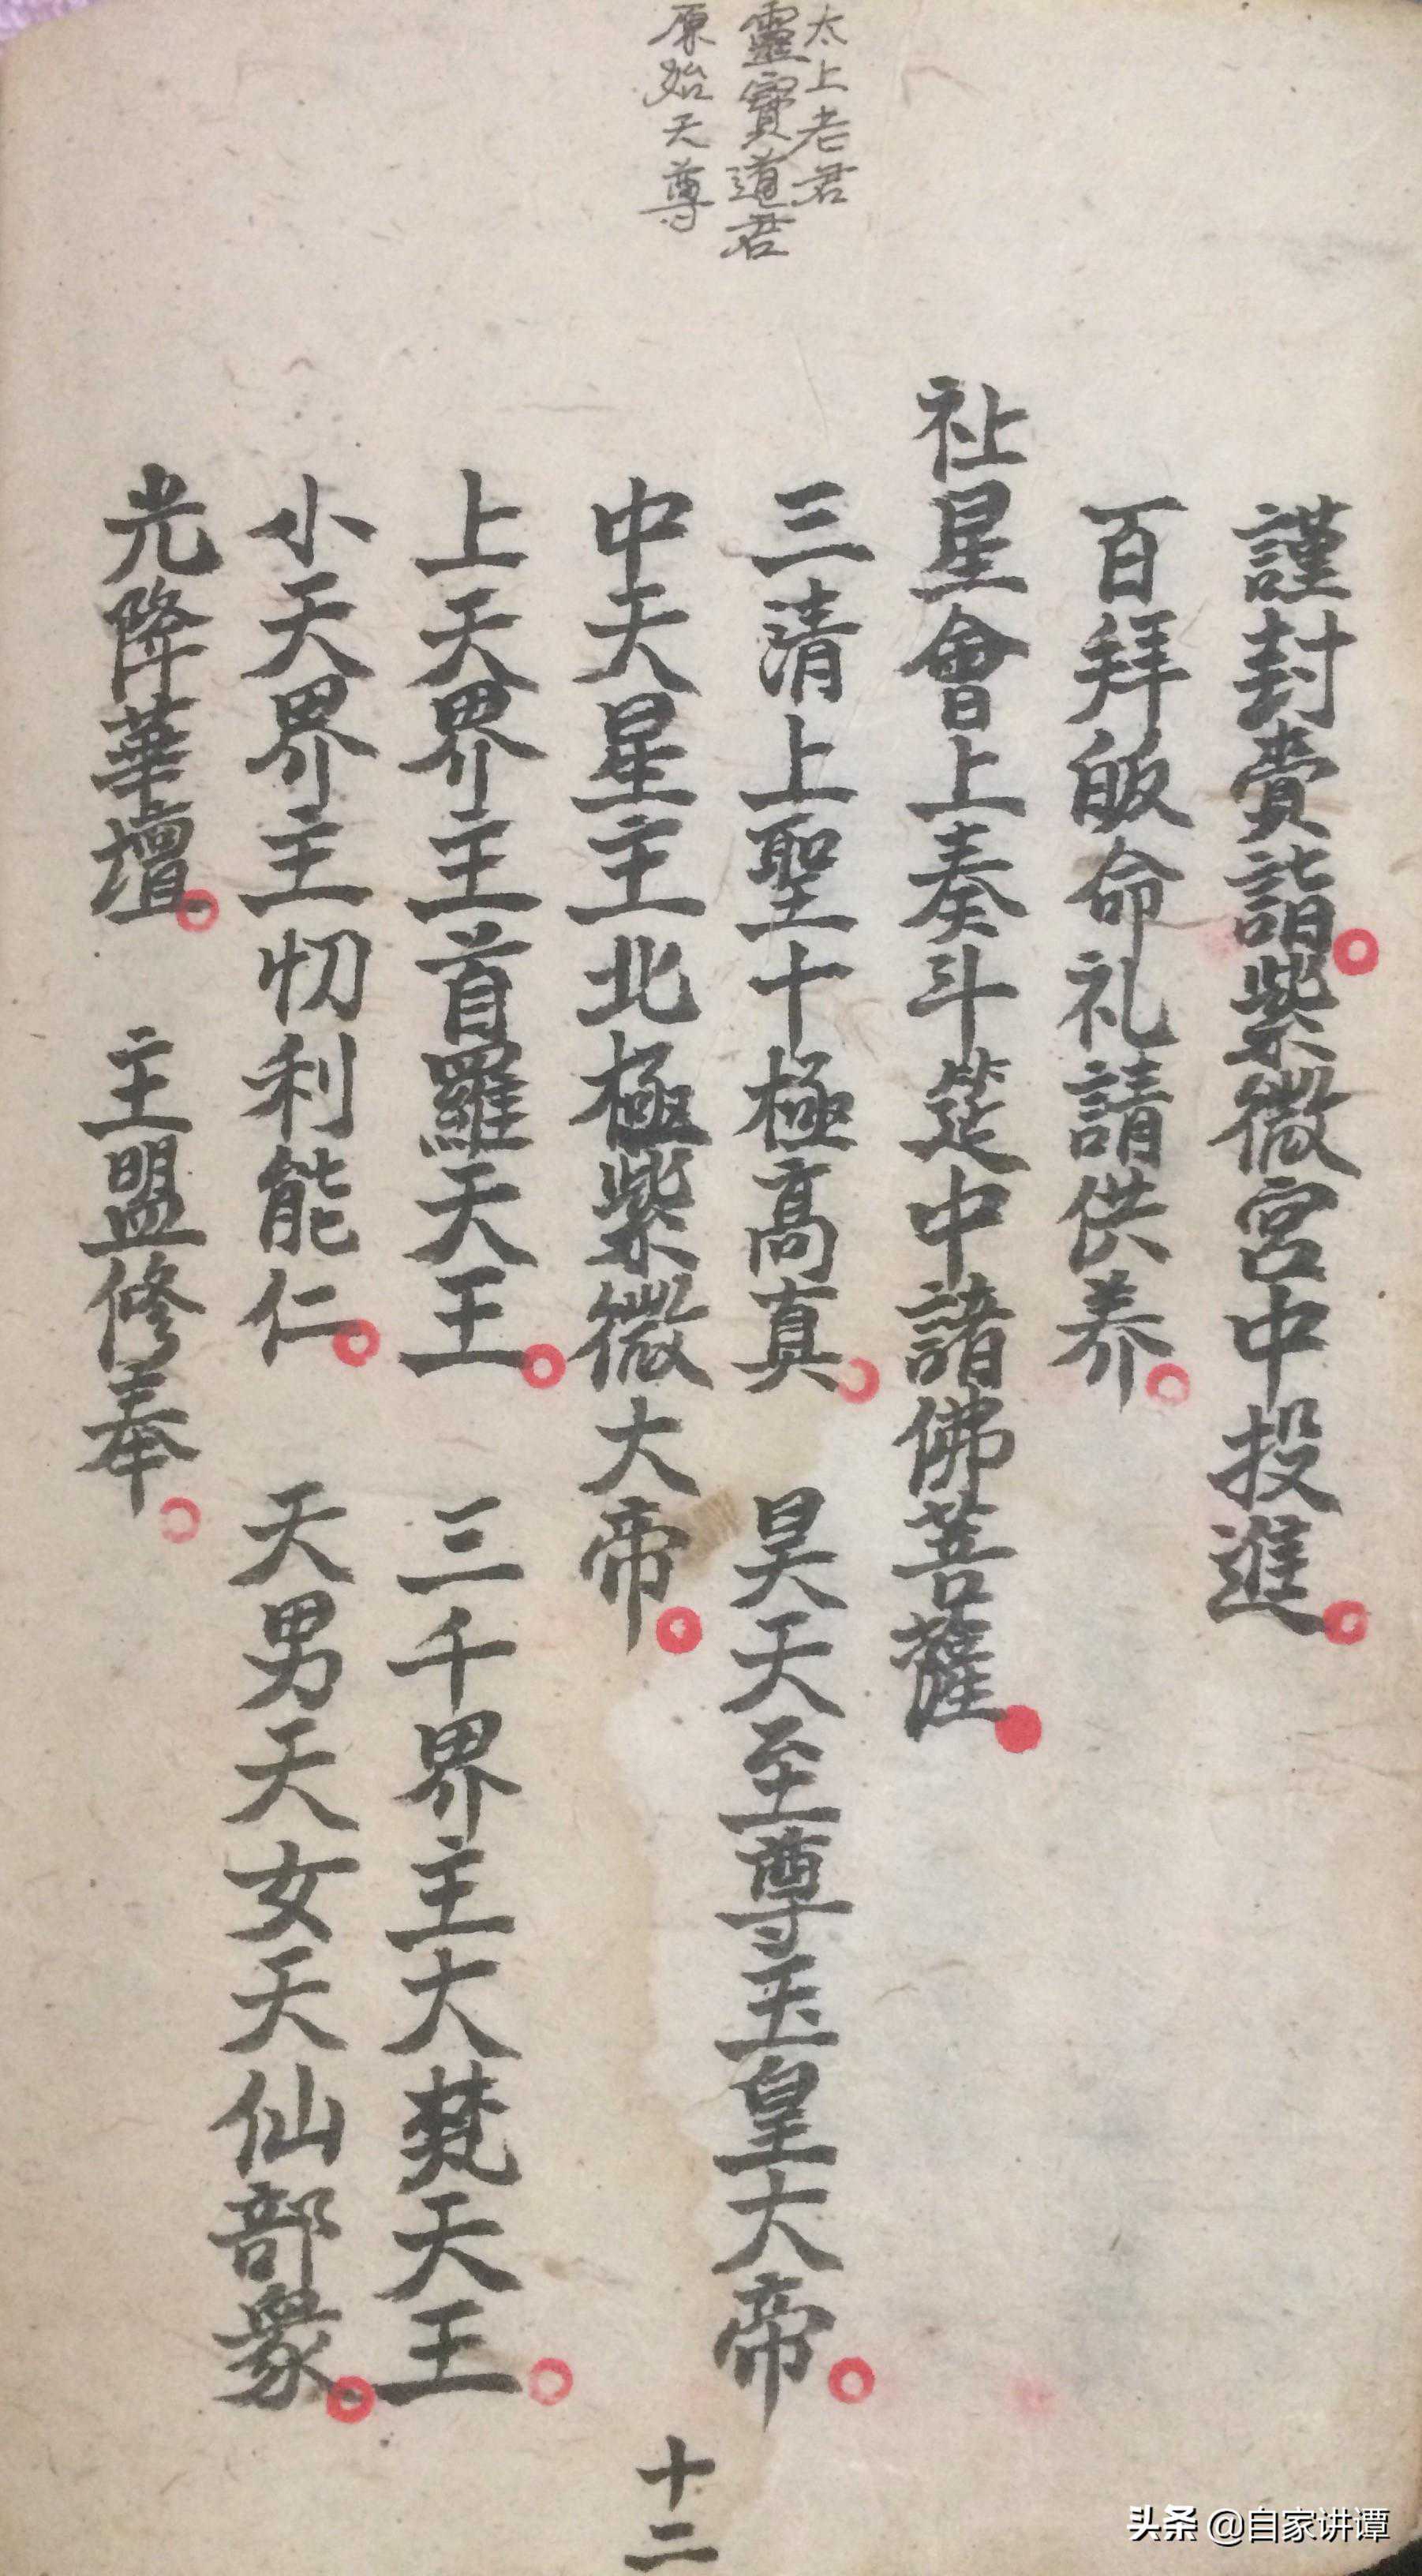 太上老君
靈寶道君
原始天尊
謹封賫詣紫微宮中投進
百拜皈命礼請供养
祉星會上奏斗筵中諸佛菩薩
三清上聖十極高真 昊天至尊玉皇大帝
中天星主北極紫微大帝
上天界主首羅天王 三千界主大梵天王
小天界主忉利能仁 天男天女天仙部衆
光降華壇 主盟修奉
十二
头条 @自家讲谭